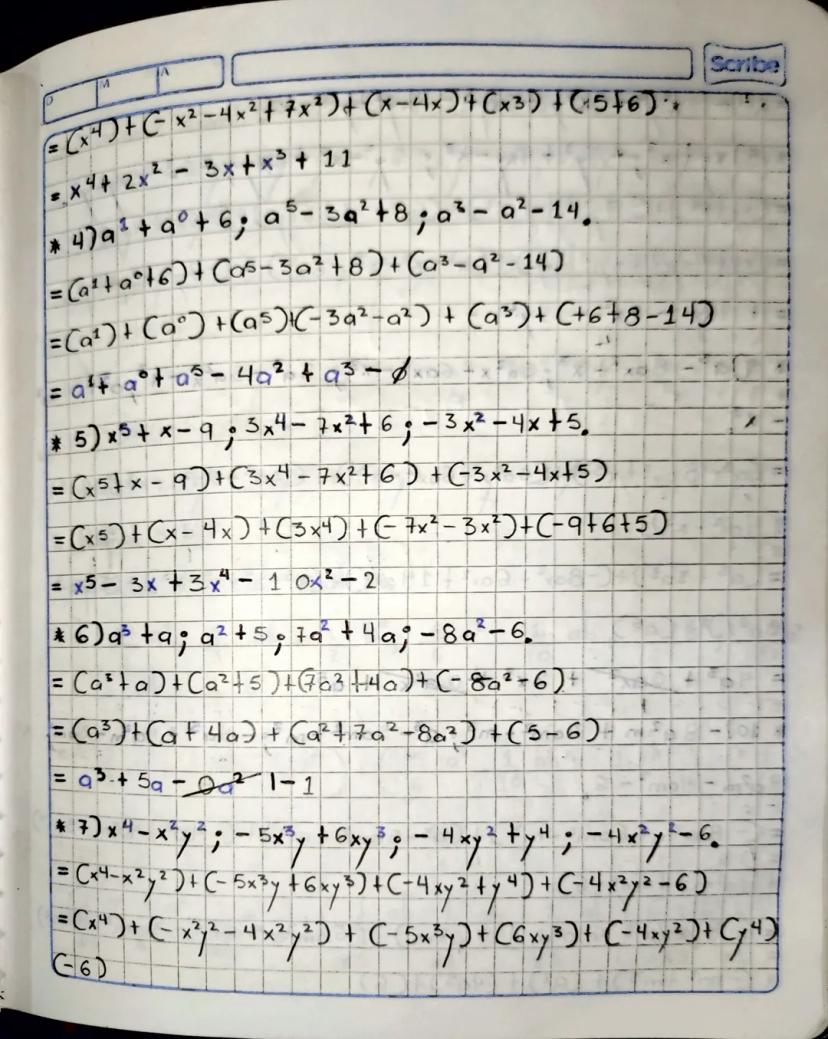 Scribe
D M A
= (x⁴) + (- x² - 4x² + 7x²) + (x - 4x) + (x3) + (5+6)
= x⁴ + 2x² - 3x + x³ + 11
* 4) a¹ + a⁰ + 6; a⁵ - 3a² + 8; a³ - a² - 14.
= (a¹ + a⁰ + 6) + (a⁵ - 3a² + 8) + (a³ - a² - 14)
= (a¹) + (a⁰) + (a⁵) + (- 3a² - a²) + (a³) + (+6 + 8 - 14)
= a¹ + a⁰ + a⁵ - 4a² + a³ - 0
* 5) x⁵ + x - 9; 3x⁴ - 7x² + 6; - 3x² - 4x + 5.
= (x⁵ + x - 9) + (3x⁴ - 7x² + 6) + (-3x² - 4x + 5)
= (x⁵) + (x - 4x) + (3x⁴) + (- 7x² - 3x²) + (- 9 + 6 + 5)
= x⁵ - 3x + 3x⁴ - 10x² - 2
* 6) a³ + a; a² + 5; 7a² + 4a; - 8a² - 6.
= (a³ + a) + (a² + 5) + (7a² + 4a) + (- 8a² - 6)
= (a³) + (a + 4a) + (a² + 7a² - 8a²) + (5 - 6)
= a³ + 5a - 0a² 1 - 1
* 7) x⁴ - x²y²; - 5x³y + 6xy³; - 4xy² + y⁴; - 4x²y² - 6.
= (x⁴ - x²y²) + (- 5x³y + 6xy³) + (- 4xy² + y⁴) + (- 4x²y² - 6)
= (x⁴) + (- x²y² - 4x²y²) + (- 5x³y) + (6xy³) + (- 4xy²) + (y⁴)
(- 6)